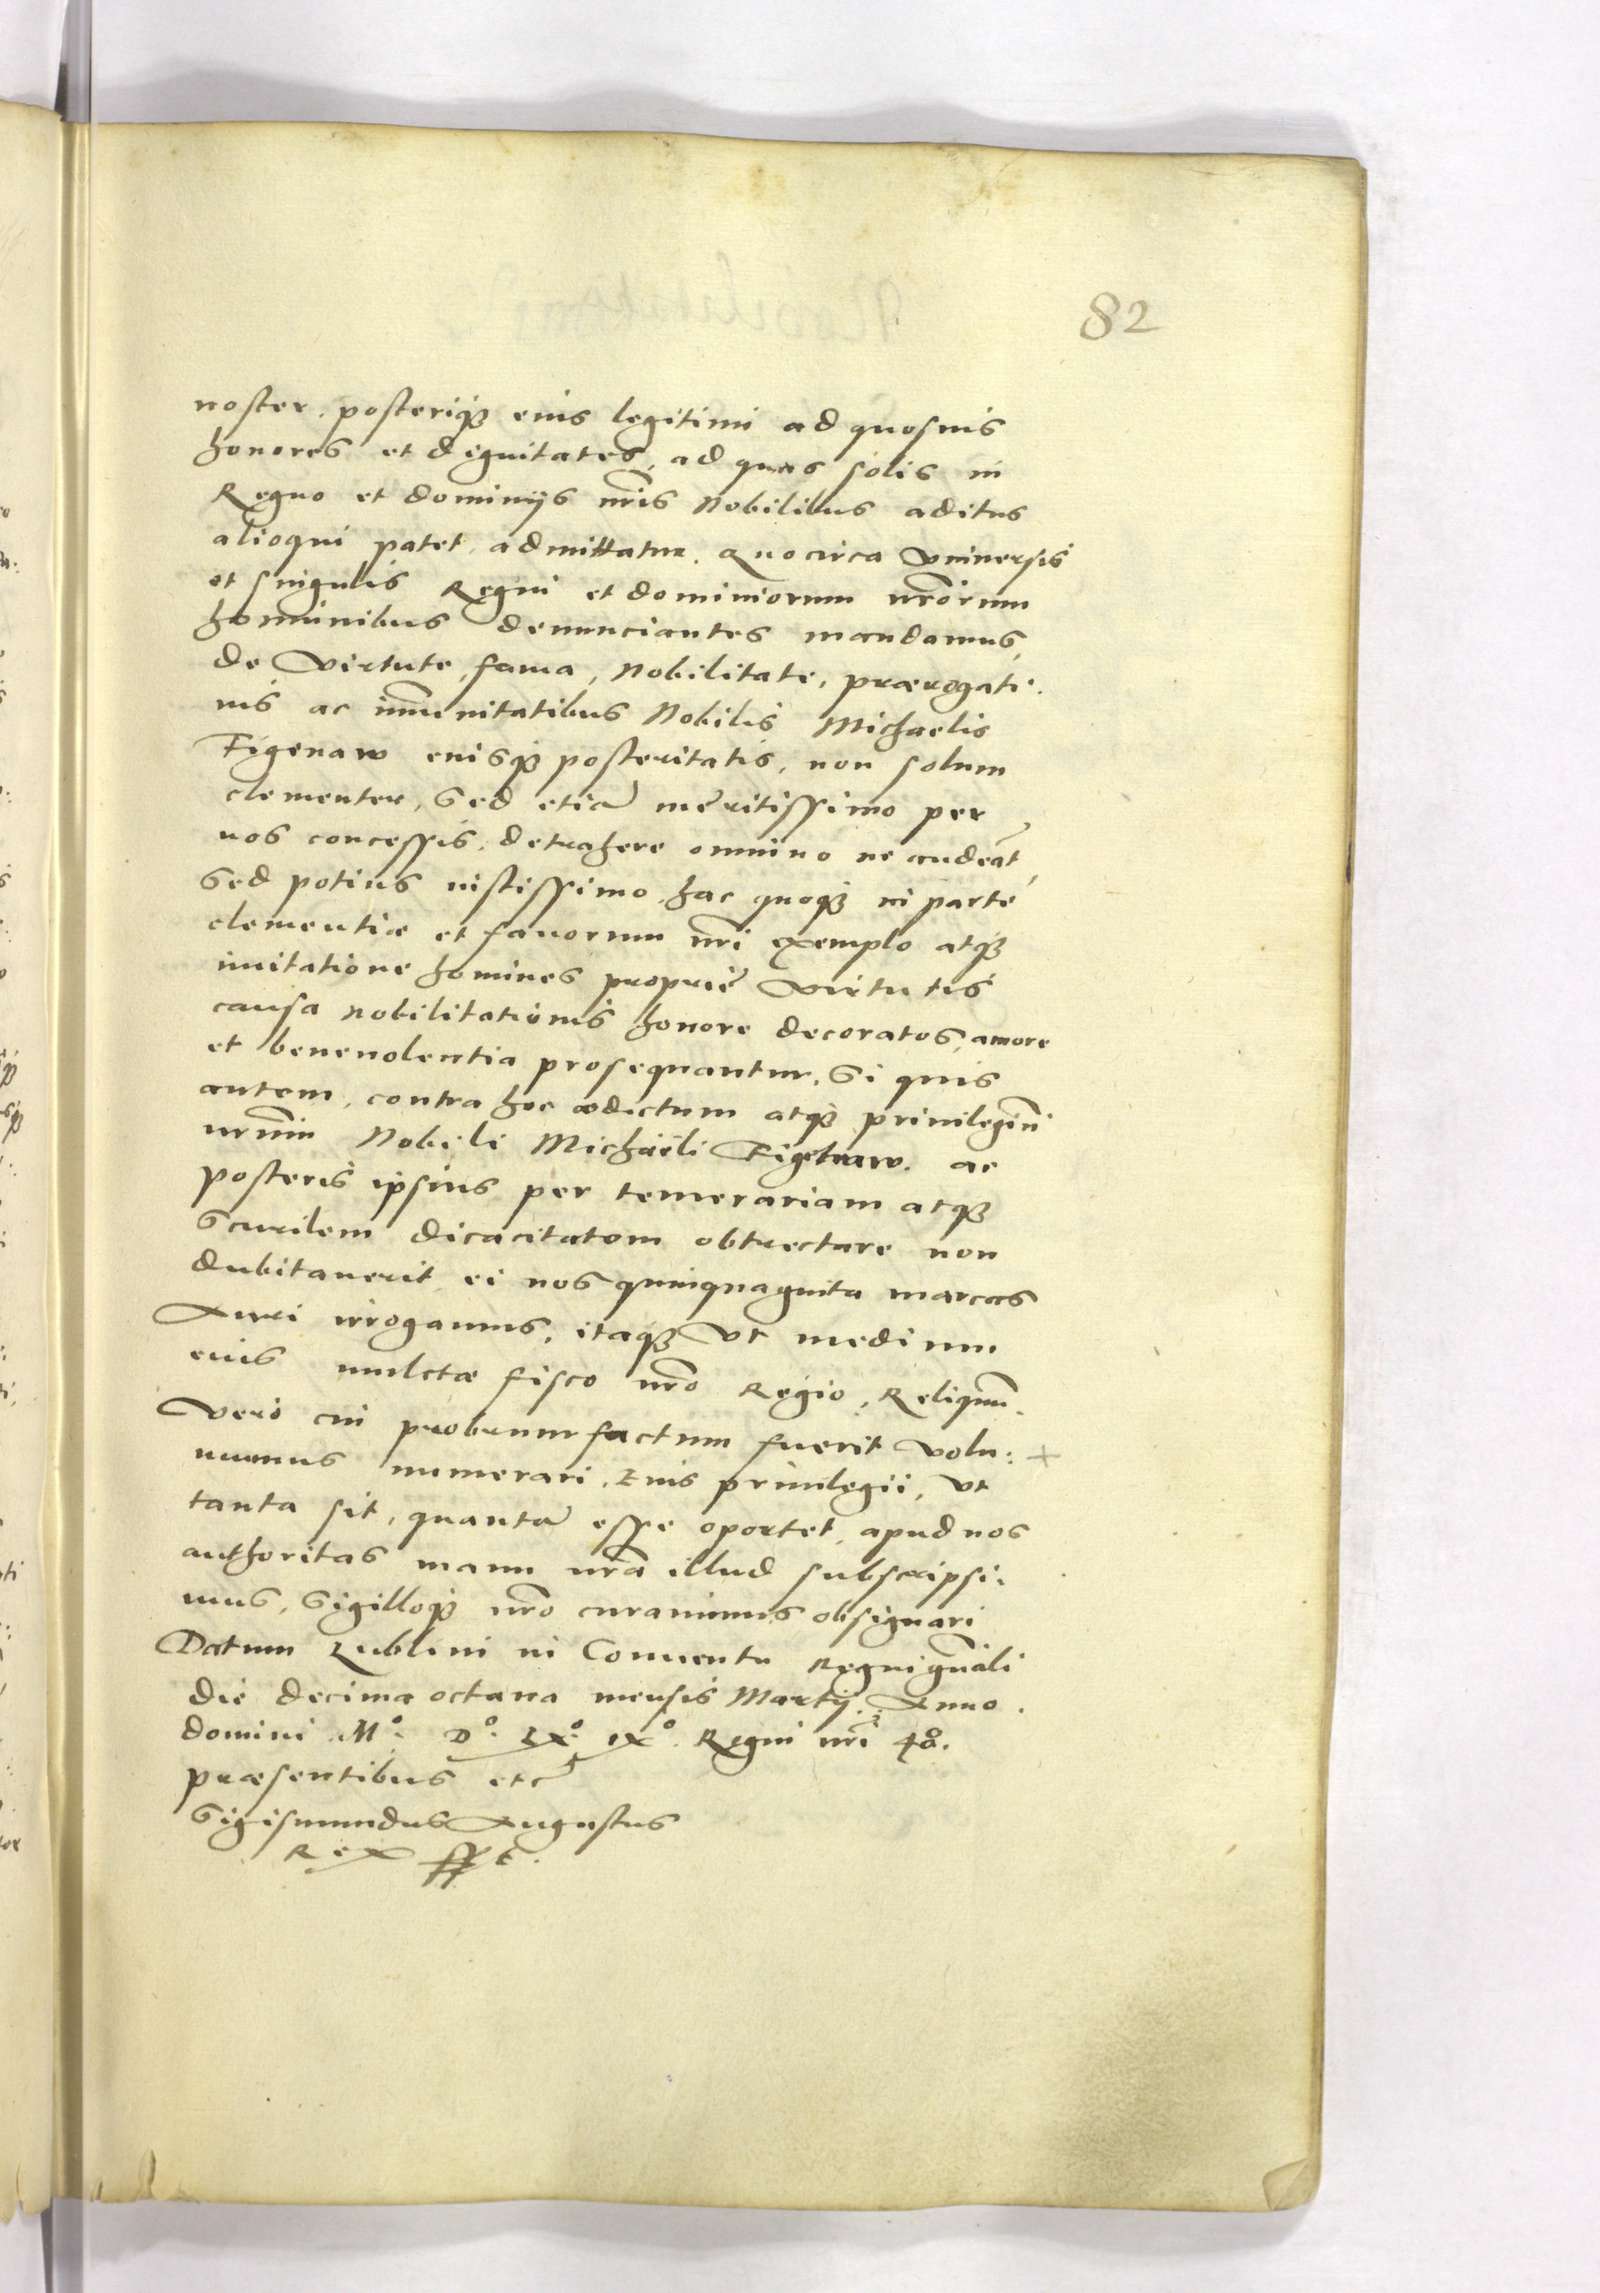 82
noster. posterique eius legitimi ad quosuis
honores et dignitates, ad quas solis in
Regno et dominijs nris Nobilibus aditus
alioqui patet, admittatur. Quocirca Vniuersis
et singulis Regni et dominiorum nrorum
hominibus denunciantes mandamus,
de Virtute, fama, Nobilitate, prærogati.
uis ac immunitatibus Nobilis Michaelis
Figenaw eiusque posteritatis, non solum
clementer, Sed etia meritissimo per
nos concessis, detrahere omnino ne audeat,
Sed potius iustissimo, hac quoque in parte
clementiæ et fauorum nri exemplo atque
imitatione homines propriæ Virtutis
causa Nobilitationis honore decoratos, amore
et beneuolentia prosequantur. Si quis
autem, contra hoc ædictum atque priuilegium
nrum Nobili Michaëli Figenaw. ac
posteris ipsius per temerariam atque
Scurilem dicacitatem obtrectare non
dubitauerit, ei nos quinquaginta marcas
Auri irrogamus, itaque Vt medium
eius mulctæ fisco nro Regio, Reliquum
Vero cui probrum factum fuerit Volu: +
mus numerari. Euis priuilegii, Vt
tanta sit, quanta esse oportet, apud nos
authoritas manu nra illud subscripsi.
mus, Sigilloque nro curauimus obsignari
Datum Lublini in Conuentu Regni gnali
die decima octaua mensis Martij. Anno.
domini Mo. Do. LXo. IXo. Regni nri 40.
præsentibus etc
Sigismundus Augustus
Rex sst.